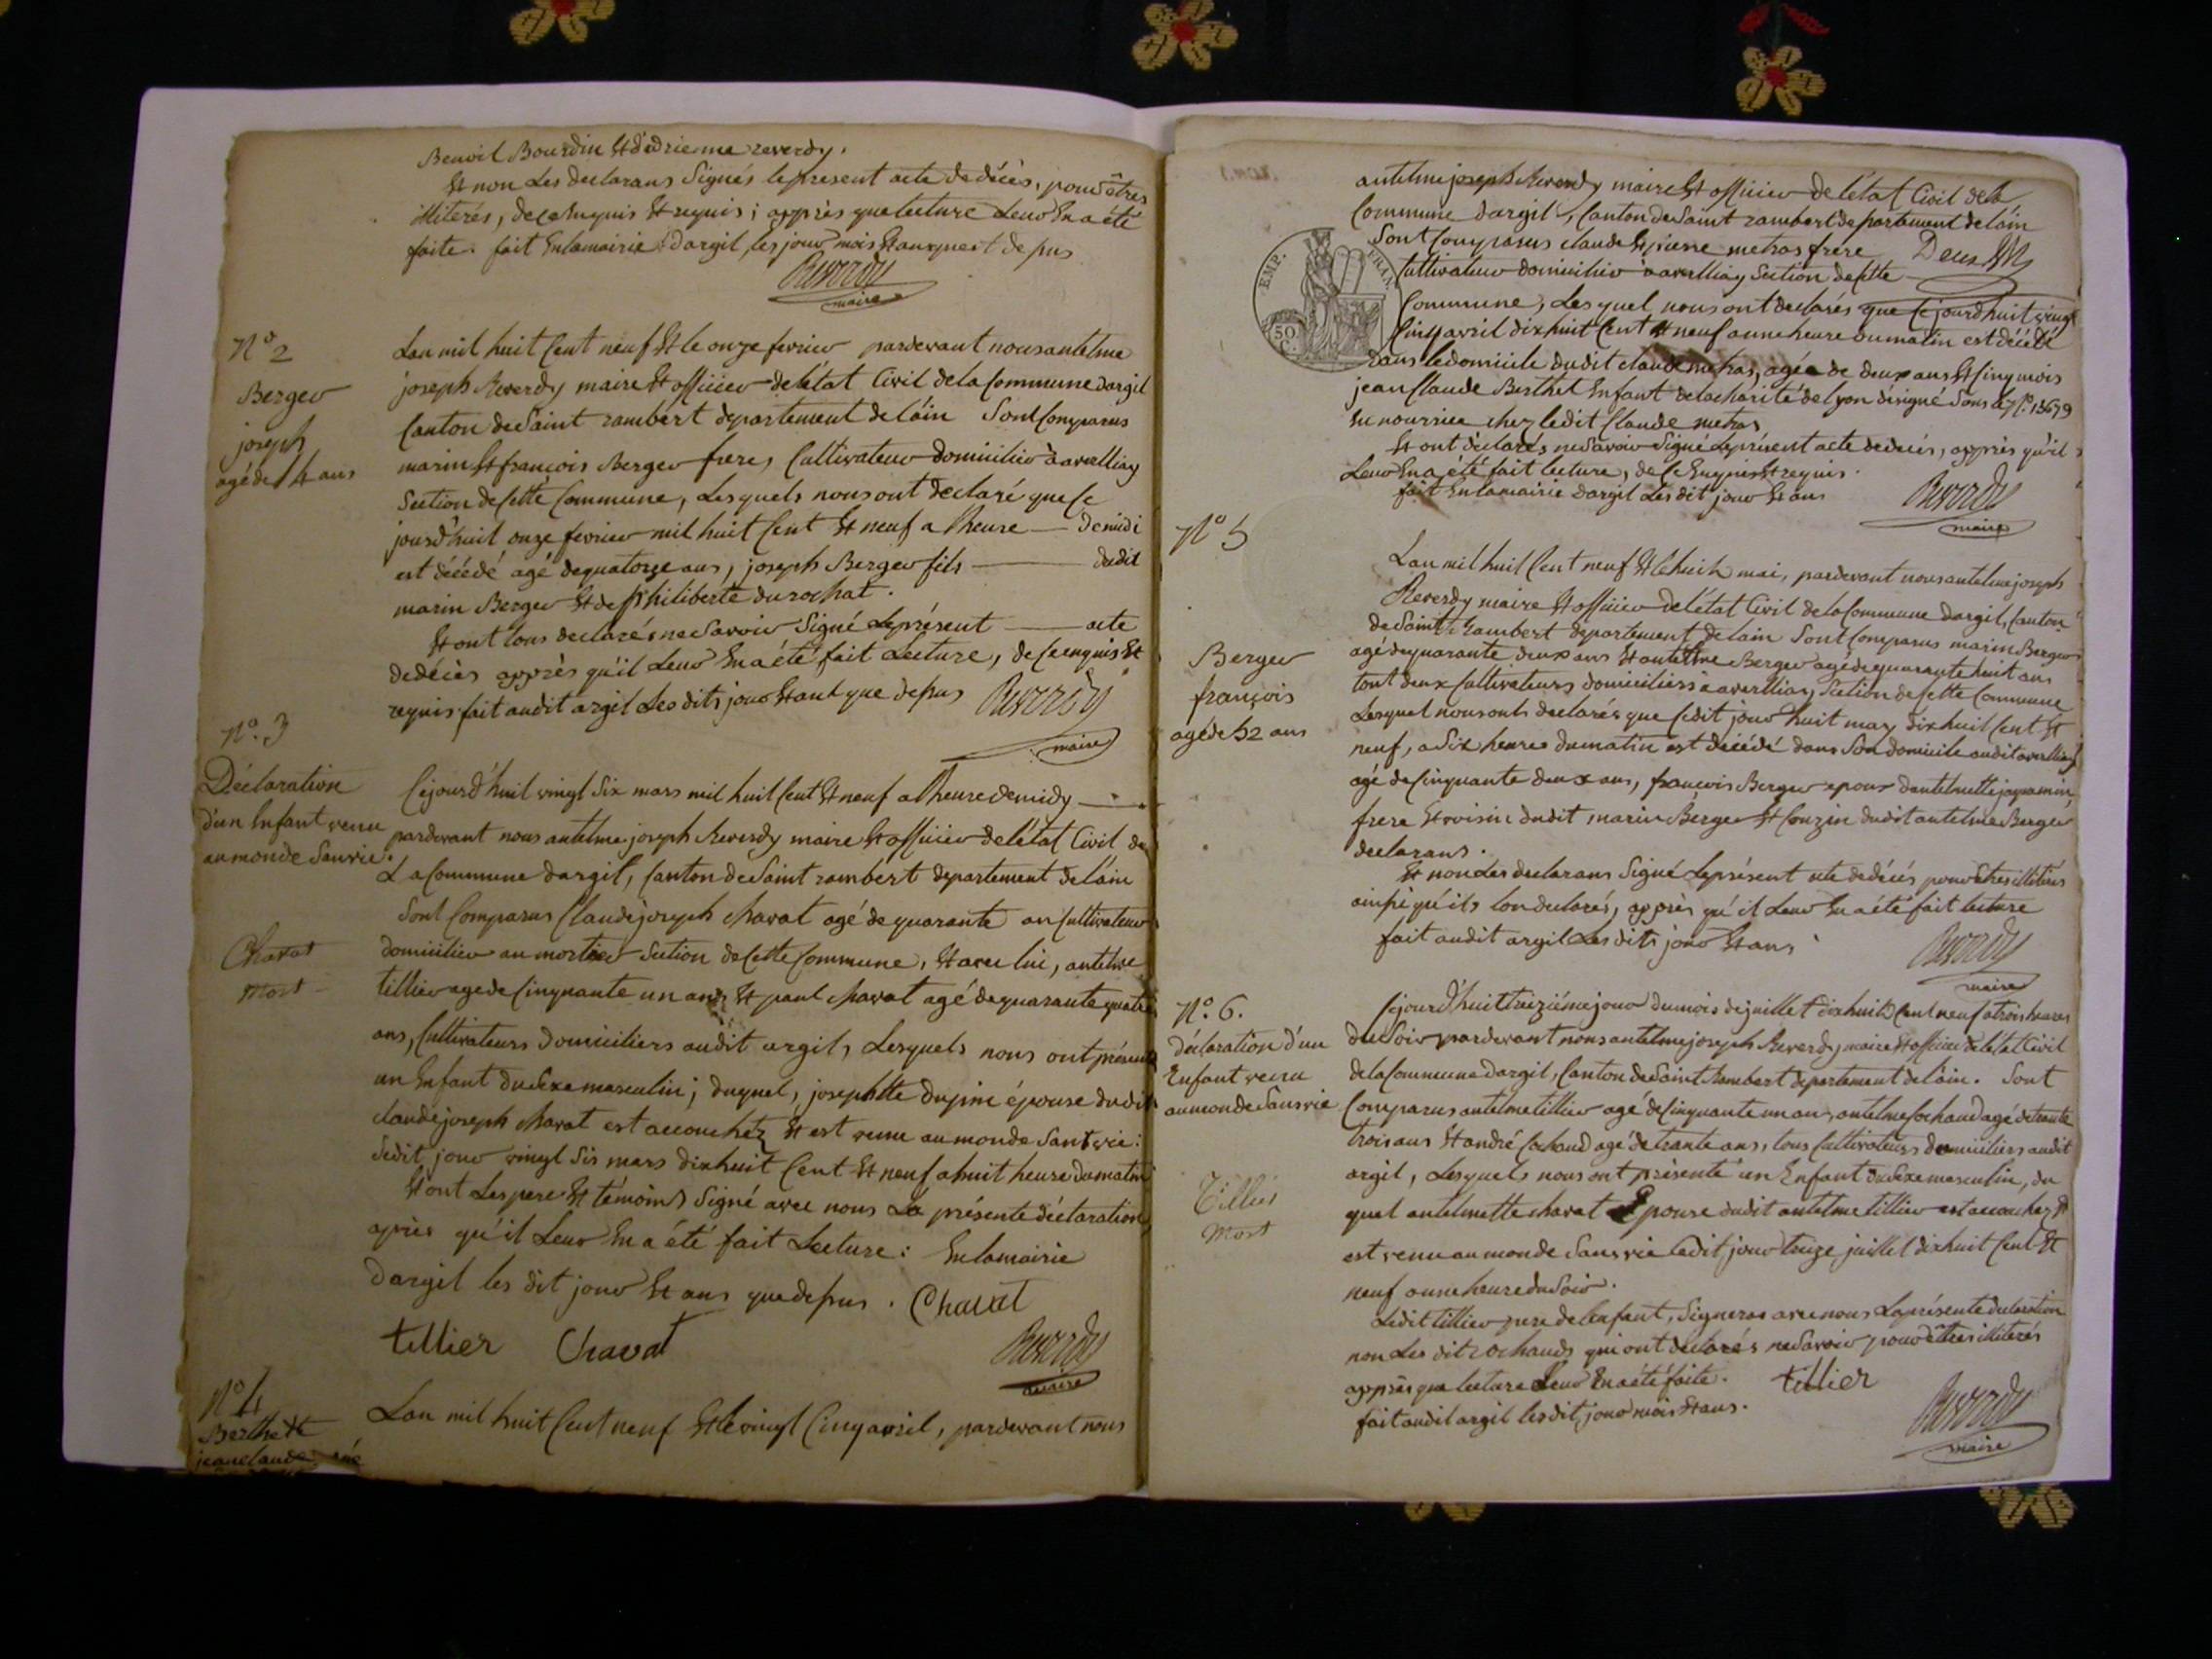 Benoit Bourdin Et d'edrienne reverdy.
Et non Les declarans Signés le present acte de décès, pour êtres
illiterés, de ce Enquis Et requis; apprès que lecture Leur En a été
faite. fait En la mairie d'argil, les jour mois Et an que de pus
Reverdy
maire
N° 2
Berger
joseph
agé de 14 ans
Lan mil huit Cent neuf Et le onze fevrier pardevant nous antelme
joseph Reverdy maire Et officier de l'état Civil de la Commune dargil
Canton de Saint rambert departement de láin Sont Comparus
marin Et francois Berger frere, Cultivateur domicilier à averlliaz
Section de Cette Commune, Lesquels nous ont declaré que Ce
jourd'huit onze fevrier mil huit Cent Et neuf a lheure — de midi
est décédé agé de quatorze ans, joseph Berger fils — dudit
marin Berger Et de Philiberte durochat.
Et ont tous declarés ne Savoir Signé Le présent — acte
de décès apprès qu'il Leur En a été fait Lecture, de Ce enquis Et
requis fait audit argil Les dits jour Et ant que depus
Reverdy
maire
N°. 3
Déclaration
d'un Enfant venu
au monde Sanvie.
Chavat
Mort
Cejourd'huit vingt Six mars mil huit Cent Et neuf a lheure de midy —
pardevant nous antelme joseph Reverdy maire Et officier de l'état Civil de
La Commune dargil, Canton de Saint rambert departement de láin
Sont Comparus Claude joseph Chavat agé de quarante an Cultivateur
domicilier au mortier Section de Cette Commune, Et avec lui, antelme
tillier age de Cinquante un ans Et paul Chavat agé de quarante quatre
ans, Cultivateurs domiciliers audit argil, Lesquels nous ont présenté
un Enfant du Sexe masculin; duquel, josephtte dupin épouse dudit
claude joseph Chavat est accouchéz Et est venu au monde Sant vie:
Ledit jour vingt Sis mars dixhuit Cent Et neuf a huit heure du matin
Et ont Les pere Et témoins Signé avec nous La présente déclaration
après qu'il Leur En a été fait Lecture: En la mairie
Dargil les dit jour Et ans que depus. Chavat
tillier Chavat
Reverdy
maire
N° 4
Berthet
jean claude
Lan mil huit Cent neuf Et le vingt Cinq avril, pardevant nous
antelme joseph Reverdy maire Et officier de l'état Civil de la
Commune dargil, Canton de Saint rambert departement de láin
Sont Comparus claude Et pierre metras frere
Cultivateur domicilier à averlliaz Section de Cette
EMP. FRAN.
50
Commune, Les quel nous ont declarés que Ce jourdhuit vingt
Cinq avril dixhuit Cent Et neuf a une heure du matin est décédé
dans le domicile dudit claude metras, agée de deux ans Et Cinq mois
jean Claude Berthet Enfant de la charité de lyon désigné Sous le N°. 13679
En nourrice chez ledit Claude metras
Et ont déclarés ne Savoir Signé Le présent acte de décès, apprès qu'il
Leur En a été fait lecture, de Ce Enquis Et requis.
fait En la mairie dargil Les dit jour Et ans
Reverdy
maire
N° 5
Berger
françois
agé de 52 ans
Lan mil huit Cent neuf Et le huit mai, pardevant nous antelme joseph
Reverdy maire Et officier de l'état Civil de la Commune dargil, Canton
de Saint Rambert departement de lain Sont Comparus marin Berger
agé de quarante deux ans Et antelme Berger agé de quarante huit ans
tout deux Cultivateurs domiciliers a averlliaz Section de Cette Commune
Lesquel nous onts declarés que Cedit jour huit may dixhuit Cent Et
neuf, a Six heures du matin est décédé dans Son domicile audit averlliaz
agé de Cinquante deux ans, francois Berger epoux dantelmette japamin,
frere Et voisin dudit marin Berger Et Couzin dudit antelme Berger
declarans.
Et non Les declarans Signé Le présent acte de décés pour êtres illitérés
ainsi qu'ils lon declarés, apprès qu'il Leur En a été fait lecture
fait audit argil Les dits jour Et ans
Reverdy
maire
N°. 6.
déclaration d'un
Enfant venu
au monde Sans vie
Tillier
Mort
Cejourd'huit treizième jour du mois de juillet dixhuit Cent neuf a trois heures
du Soir pardevant nous antelme joseph Reverdy maire Et officier de l'état Civil
de la Commune dargil, Canton de Saint Rambert departement de láin. Sont
Comparus antelme tillier agé de Cinquante un an, antelme Cochaud agé de trante
trois ans Et andré Cochaud agé de trante ans, tous Cultivateurs domiciliers audit
argil, Lesquels nous ont présenté un Enfant du Sexe masculin, du
quel antelmette chavat Epouse dudit antelme tillier est accouchez Et
est venu au monde Sans vie Ledit jour treize juillet dixhuit Cent Et
neuf a une heure du Soir.
Ledit tillier pere de lenfant, Signeras avec nous La présente declaration
non Les dit Cochauds qui ont declarés ne Savoir pour êtres illiterés
apprès que lecture Leur En a été faite. tillier
fait audit argil les dit jour mois Et ans.
Reverdy
maire